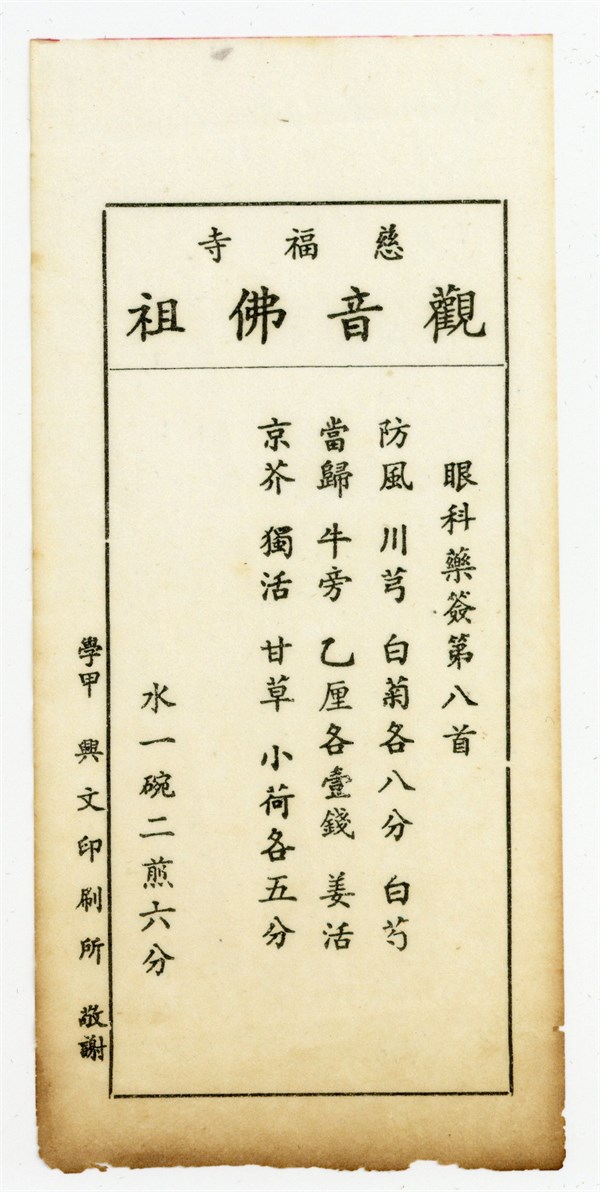 慈福寺
觀音佛祖
眼科藥簽第八首
防風 川芎 白菊各八分 白芍
當歸 牛旁 乙厘各壹錢 姜活
京芥 獨活 甘草 小荷各五分
水一碗二煎六分
學甲 興文印刷所 敬謝